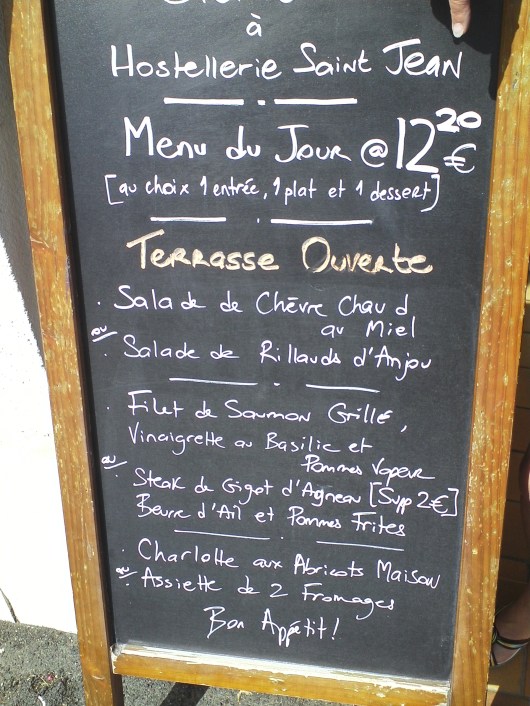 à
Hostellerie Saint Jean
Menu du Jour @ 12 20 €
[au choix 1 entrée, 1 plat et 1 dessert]
Terrasse Ouverte
. Salade de Chèvre Chaud
au Miel
ou
. Salade de Rillauds d'Anjou
. Filet de Saumon Grillé,
Vinaigrette au Basilic et
Pommes Vapeur
ou
. Steak de Gigot d'Agneau [Supp 2€]
Beurre d'Ail et Pommes Frites
. Charlotte aux Abricots Maison
ou
. Assiette de 2 Fromages
Bon Appétit!